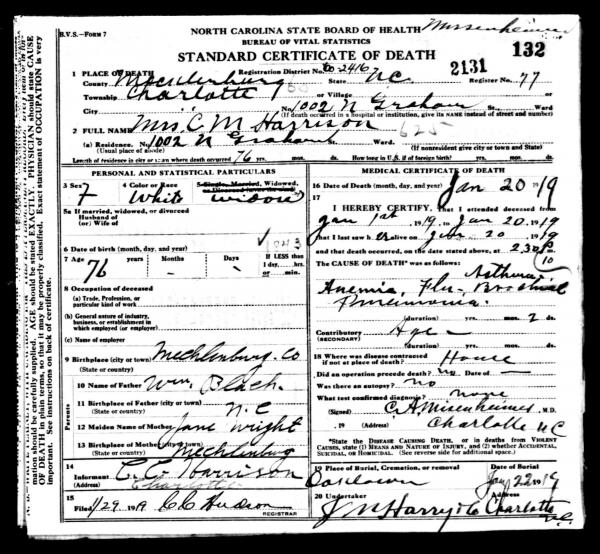 B.V.S.—FORM 7
NORTH CAROLINA STATE BOARD OF HEALTH Misenheimer
BUREAU OF VITAL STATISTICS
STANDARD CERTIFICATE OF DEATH
132
2131
1 PLACE OF DEATH
County Mecklenburg Registration District No. 60-2416 State N.C. Register No. 77
Township Charlotte or Village
City No. 1002 N Graham St., Ward
(If death occurred in a hospital or institution, give its NAME instead of street and number)
2 FULL NAME Mrs. C M Harrison
(a) Residence. No. 1002 N Graham St., Ward
(Usual place of abode) (If nonresident give city or town and State)
Length of residence in city or town where death occurred 76 yrs. mos. ds. How long in U.S., if of foreign birth? yrs. mos. ds.
PERSONAL AND STATISTICAL PARTICULARS
3 Sex F 4 Color or Race White 5 Single, Married, Widowed, or Divorced widow
5a If married, widowed, or divorced
Husband of
(or) Wife of
6 Date of birth (month, day, and year) 1843
7 Age 76 years Months — Days — If LESS than 1 day,....hrs. or....min.
8 Occupation of deceased
(a) Trade, Profession, or particular kind of work
(b) General nature of industry, business, or establishment in which employed (or employer)
(c) Name of employer
9 Birthplace (city or town) Mecklenburg Co
(State or country)
Parents
10 Name of Father Wm. Black
11 Birthplace of Father (city or town) N.C
(State or country)
12 Maiden Name of Mother Jane Wright
13 Birthplace of Mother (city or town) Mecklenburg
(State or country)
14 Informant C. C. Harrison
(Address) Charlotte
15 Filed 1/29 1919 C C Hudson
REGISTRAR
MEDICAL CERTIFICATE OF DEATH
16 Date of Death (month, day, and year) Jan 20 1919
17 I HEREBY CERTIFY, That I attended deceased from
Jan 1st 1919 to Jan 20 1919
that I last saw her alive on Jan 20 1919
and that death occurred, on the date stated above, at 2:30 P m.
10
The CAUSE OF DEATH* was as follows:
Asthma
Anemia, Flu - Bronchial
Pneumonia.
(duration) yrs. mos. 2 ds.
Contributory Age —
(SECONDARY)
(duration) yrs. mos. ds.
18 Where was disease contracted if not at place of death? House
Did an operation precede death? no Date of —
Was there an autopsy? no
What test confirmed diagnosis? none
(Signed) C.A. Misenheimer, M.D.
, 19 (Address) Charlotte N C
*State the DISEASE CAUSING DEATH, or in deaths from VIOLENT CAUSES, state (1) MEANS AND NATURE OF INJURY, and (2) whether ACCIDENTAL, SUICIDAL, OR HOMICIDAL. (See reverse side for additional space.)
19 Place of Burial, Cremation, or removal Date of Burial
Oaklawn Jan 22 1919
20 Undertaker
J M Harry & Co Charlotte N.C.